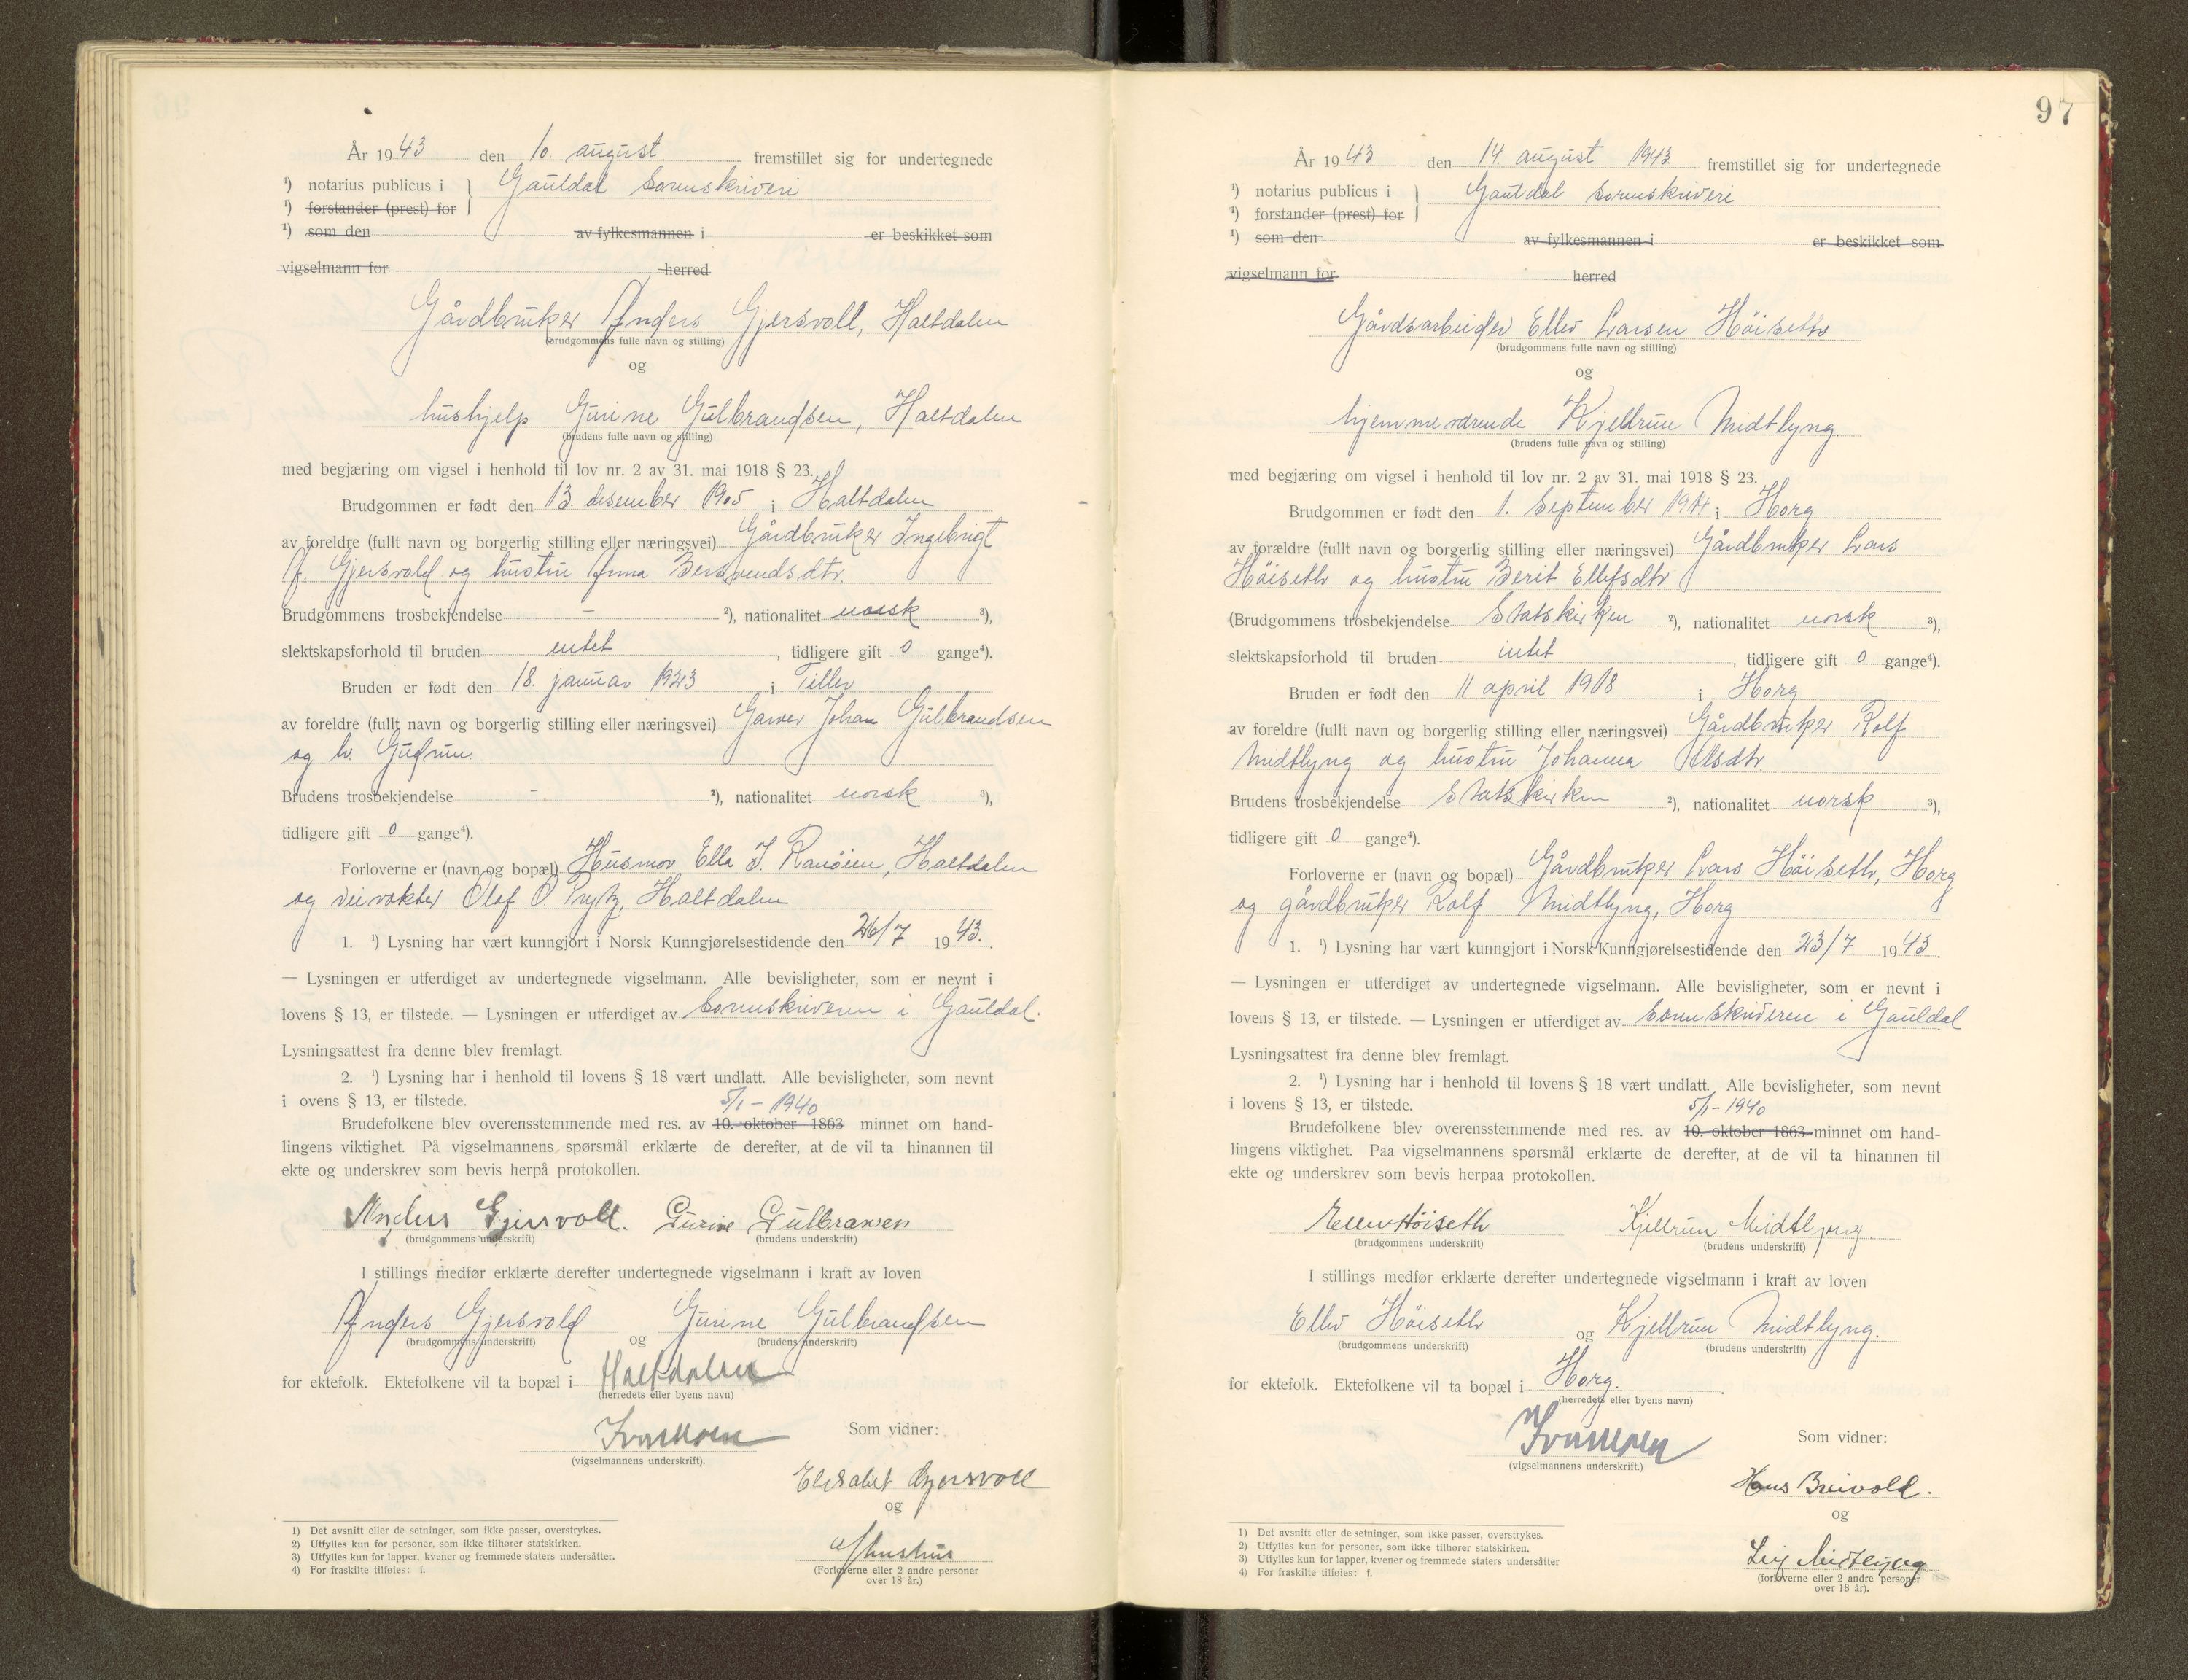 År 1943 den 10. august. fremstillet sig for undertegnede
¹) notarius publicus i } Gauldal sorenskriveri
¹) forstander (prest) for
¹) som den av fylkesmannen i er beskikket som
vigselmann for herred
Gårdbruker Anders Gjersvoll, Haltdalen
(brudgommens fulle navn og stilling)
og
hushjelp Gurine Gulbrandsen, Haltdalen
(brudens fulle navn og stilling)
med begjæring om vigsel i henhold til lov nr. 2 av 31. mai 1918 § 23.
Brudgommen er født den 13. desember 1905 i Haltdalen
av foreldre (fullt navn og borgerlig stilling eller næringsvei) Gårdbruker Ingebrigt
A. Gjersvold og hustru Anna Bersvendsdtr.
Brudgommens trosbekjendelse - ²), nationalitet norsk ³),
slektskapsforhold til bruden intet , tidligere gift 0 gange⁴).
Bruden er født den 18. januar 1923 i Tiller
av foreldre (fullt navn og borgerlig stilling eller næringsvei) Garver Johan Gulbrandsen
og h. Gudrun.
Brudens trosbekjendelse -. ²), nationalitet norsk ³),
tidligere gift 0 gange⁴).
Forloverne er (navn og bopæl) Husmor Ella I. Ranöien, Haltdalen
og veivokter Olof O Prytz, Haltdalen
1. ¹) Lysning har vært kunngjort i Norsk Kunngjørelsestidende den 26/7 1943.
— Lysningen er utferdiget av undertegnede vigselmann. Alle bevisligheter, som er nevnt i
lovens § 13, er tilstede. — Lysningen er utferdiget av Sorenskriveren i Gauldal.
Lysningsattest fra denne blev fremlagt.
2. ¹) Lysning har i henhold til lovens § 18 vært undlatt. Alle bevisligheter, som nevnt
i ovens § 13, er tilstede.
5/1 - 1940
Brudefolkene blev overensstemmende med res. av 10. oktober 1863 minnet om hand-
lingens viktighet. På vigselmannens spørsmål erklærte de derefter, at de vil ta hinannen til
ekte og underskrev som bevis herpå protokollen.
Anders Gjersvoll. Gurine Gulbransen
(brudgommens underskrift) (brudens underskrift)
I stillings medfør erklærte derefter undertegnede vigselmann i kraft av loven
Anders Gjersvold og Gurine Gulbrandsen
(brudgommens underskrift) (brudens underskrift)
for ektefolk. Ektefolkene vil ta bopæl i Haltdalen
(herredets eller byens navn)
Som vidner:
(vigselmannens underskrift).
Elisabet Gjersvoll
og
(Forloverne eller 2 andre personer
over 18 år.)
1) Det avsnitt eller de setninger, som ikke passer, overstrykes.
2) Utfylles kun for personer, som ikke tilhører statskirken.
3) Utfylles kun for lapper, kvener og fremmede staters undersåtter.
4) For fraskilte tilføies: f.
97
År 1943 den 14. august 1943. fremstillet sig for undertegnede
¹) notarius publicus i } Gauldal sorenskriveri
¹) forstander (prest) for
¹) som den av fylkesmannen i er beskikket som
vigselmann for herred
Gårdsarbeider Ellev Larsen Höiseth
(brudgommens fulle navn og stilling)
og
hjemmeværende Kjellrun Midtlyng.
(brudens fulle navn og stilling)
med begjæring om vigsel i henhold til lov nr. 2 av 31. mai 1918 § 23.
Brudgommen er født den 1. September 1914 i Horg
av forældre (fullt navn og borgerlig stilling eller næringsvei) Gårdbruker Lars
Höiseth og hustru Berit Ellefsdtr.
(Brudgommens trosbekjendelse Statskirken ²), nationalitet norsk ³),
slektskapsforhold til bruden intet , tidligere gift 0 gange⁴).
Bruden er født den 11 april 1918 i Horg
av foreldre (fullt navn og borgerlig stilling eller næringsvei) Gårdbruker Rolf
Midtlyng og hustru Johanna Olsdtr.
Brudens trosbekjendelse Statskirken ²), nationalitet norsk ³),
tidligere gift 0 gange⁴).
Forloverne er (navn og bopæl) Gårdbruker Lars Höiseth, Horg
og gårdbruker Rolf Midtlyng, Horg
1. ¹) Lysning har vært kunngjort i Norsk Kunngjørelsestidende den 23/7 1943.
— Lysningen er utferdiget av undertegnede vigselmann. Alle bevisligheter, som er nevnt i
lovens § 13, er tilstede. — Lysningen er utferdiget av Sorenskriveren i Gauldal
Lysningsattest fra denne blev fremlagt.
2. ¹) Lysning har i henhold til lovens § 18 vært undlatt. Alle bevisligheter, som nevnt
i lovens § 13, er tilstede.
5/1 - 1940
Brudefolkene blev overensstemmende med res. av 10. oktober 1863 minnet om hand-
lingens viktighet. Paa vigselmannens spørsmål erklærte de derefter, at de vil ta hinannen til
ekte og underskrev som bevis herpaa protokollen.
Ellev Höiseth Kjellrun Midtlyng.
(brudgommens underskrift) (brudens underskrift)
I stillings medfør erklærte derefter undertegnede vigselmann i kraft av loven
Ellev Höiseth og Kjellrun Midtlyng.
(brudgommens underskrift) (brudens underskrift)
for ektefolk. Ektefolkene vil ta bopæl i Horg.
(herredets eller byens navn)
Som vidner:
(vigselmannens underskrift.)
Hans Breivold.
og
Leif Midtlyng
(forloverne eller 2 andre personer
over 18 år).
1) Det avsnitt eller de setninger, som ikke passer, overstrykes.
2) Utfylles kun for personer, som ikke tilhører statskirken.
3) Utfylles kun for lapper, kvener og fremmede staters undersåtter
4) For fraskilte tilføies: f.